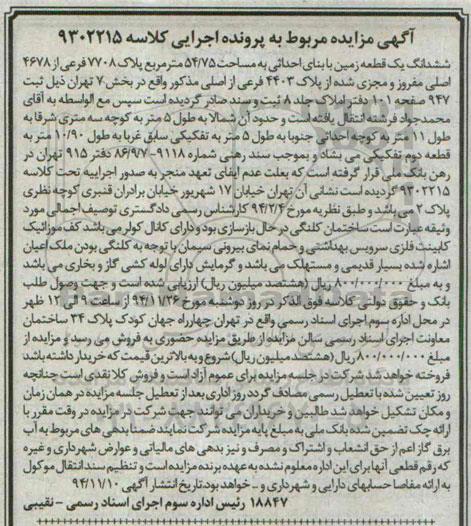 آگهی مزایده مربوط به پرونده اجرایی کلاسه ۹۳۰۲۲۱۵
ششدانگ یک قطعه زمین با بنای احداثی به مساحت ۵۴/۷۵ مترمربع پلاک ۷۷۰۸ فرعی از ۴۶۷۸
اصلی مفروز و مجزی شده از پلاک ۴۴۰۳ فرعی از اصلی مذکور واقع در بخش ۷ تهران ذیل ثبت
۹۴۷ صفحه ۱۰۱ دفتر املاک جلد ۸ ثبت و سند صادر گردیده است سپس مع الواسطه به آقای
محمدجواد فرشته انتقال یافته است و حدود آن شمالا به طول ۵ متر به کوچه سه متری شرقا به
طول ۱۱ متر به کوچه احداثی جنوبا به طول ۵ متر به تفکیکی سابق غربا به طول ۱۰/۹۰ متر به
قطعه دوم تفکیکی می باشد و بموجب سند رهنی شماره ۹۱۱۸-۸۶/۹/۷ دفتر ۹۱۵ تهران در
رهن بانک ملی قرار گرفته است که بعلت عدم ایفای تعهد منجر به صدور اجراییه تحت کلاسه
۹۳۰۲۲۱۵ گردیده است نشانی آن تهران خیابان ۱۷ شهریور خیابان برادران قنبری کوچه نظری
پلاک ۲ می باشد و طبق نظریه مورخ ۹۴/۲/۶ کارشناس رسمی دادگستری توصیف اجمالی مورد
وثیقه عبارت است ساختمان کلنگی در حال بازسازی بود و دارای کانال کولر می باشد کف موزائیک
کابینت فلزی سرویس بهداشتی و حمام نمای بیرونی سیمان با توجه به کلنگی بودن ملک اعیان
اشاره شده بسیار قدیمی و مستهلک می باشد و گرمایش دارای لوله کشی گاز و بخاری می باشد
و به مبلغ ۸۰۰/۰۰۰/۰۰۰ ریال (هشتصد میلیون ریال) ارزیابی شده است و جهت وصول طلب
بانک و حقوق دولتی کلاسه فوق الذکر در روز دوشنبه مورخ ۹۴/۱۱/۲۶ از ساعت ۹ الی ۱۲ ظهر
در محل اداره سوم اجرای اسناد رسمی واقع در تهران چهارراه جهان کودک پلاک ۳۴ ساختمان
معاونت اجرای اسناد رسمی سالن مزایده از طریق مزایده حضوری به فروش می رسد و مزایده از
مبلغ ۸۰۰/۰۰۰/۰۰۰ ریال (هشتصد میلیون ریال) شروع و به بالاترین قیمت که خریدار داشته باشد
فروخته خواهد شد شرکت در جلسه مزایده برای عموم آزاد است و فروش کلا نقدی است چنانچه
روز تعیین شده با تعطیل رسمی مصادف گردد روز اداری بعد از تعطیل جلسه مزایده در همان زمان
و مکان تشکیل خواهد شد طالبین و خریداران می توانند جهت شرکت در مزایده در وقت مقرر با
ارائه چک تضمین شده بانک ملی به مبلغ پایه مزایده شرکت نمایند ضمنا بدهی های مربوط به آب
برق گاز اعم از حق انشعاب و اشتراک و مصرف و نیز بدهی های مالیاتی و عوارض شهرداری و غیره
که رقم قطعی آنها برای این اداره معلوم نشده به عهده برنده مزایده است و تنظیم سند انتقال موکول
به ارائه مفاصا حسابهای دارایی و شهرداری و .. خواهد بود. تاریخ انتشار آگهی ۹۴/۱۱/۱۰
۱۸۸۴۷ رئیس اداره سوم اجرای اسناد رسمی - نقیبی